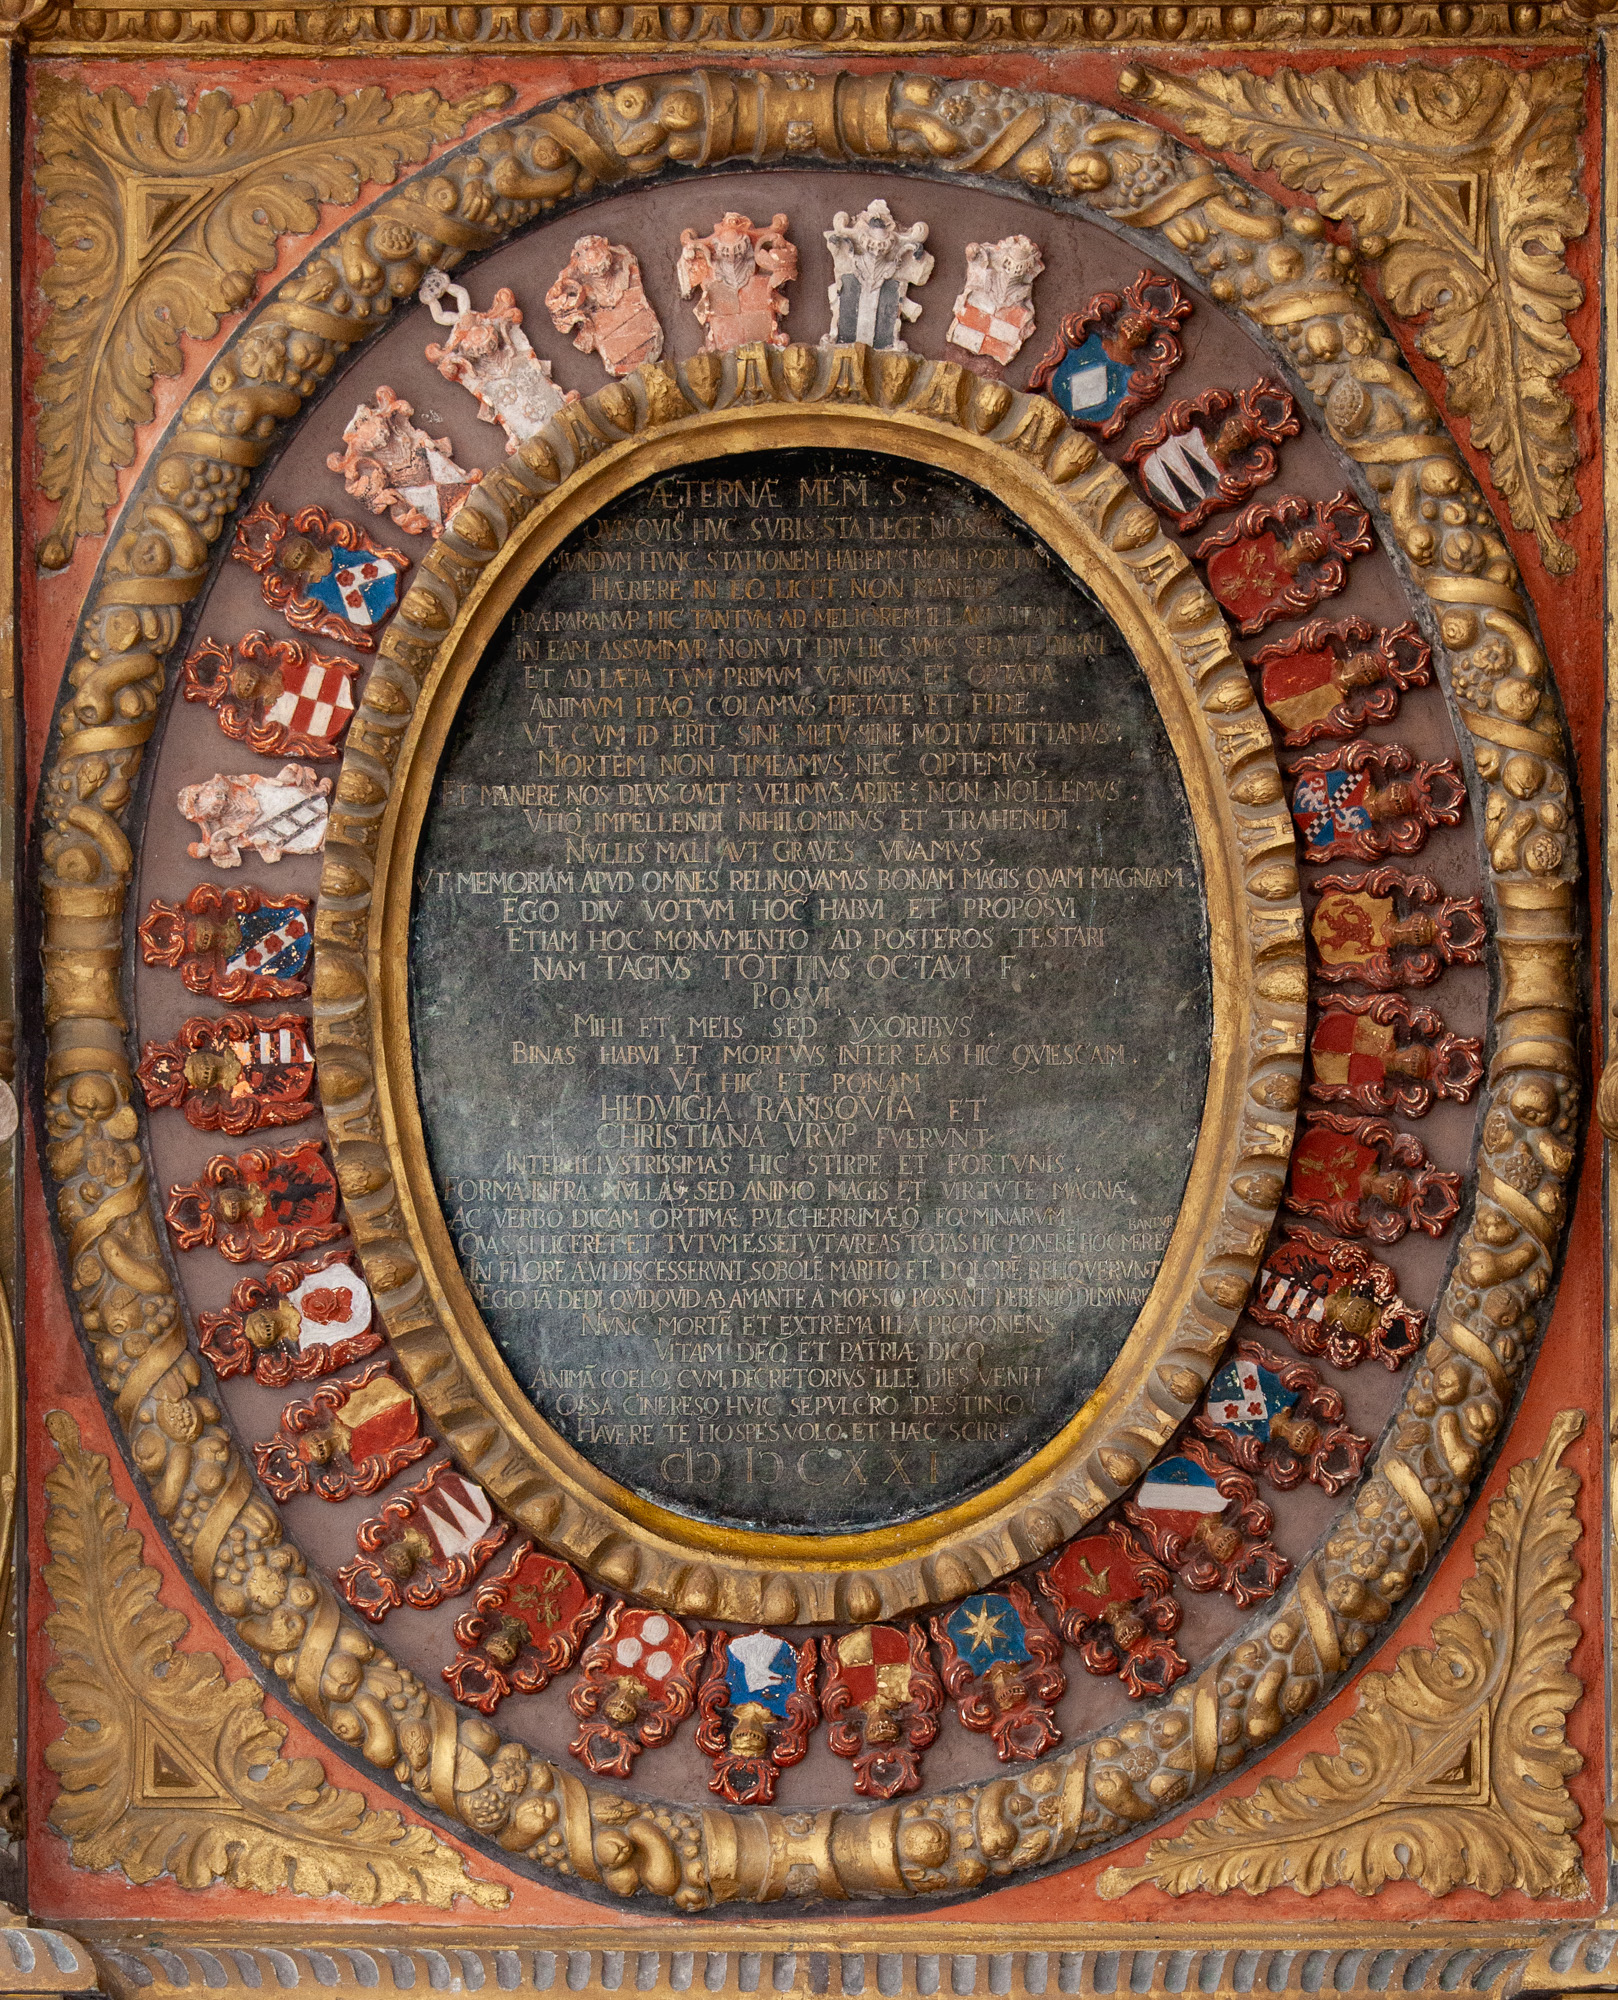 ÆTERNÆ MEM. S.
QVISQVIS HVC SVBIS STA LEGE NOSCE.
MVNDVM HVNC STATIONEM HABEM'S NON PORTVM
HÆRERE IN EO LICET NON MANERE
PRÆPARAMVR HIC TANTVM AD MELIOREM ILLAM VITAM.
IN EAM ASSVMIMVR NON VT DIV HIC SVM'S SED VT DIGNI
ET AD LÆTA TVM PRIMVM VENIMVS ET OPTATA.
ANIMVM ITAQ COLAMVS PIETATE ET FIDE.
VT CVM ID ERIT, SINE METU SINE MOTV EMITTAMVS.
MORTEM NON TIMEAMVS, NEC OPTEMVS,
ET MANERE NOS DEVS VULT? VELIMVS. ABIRE? NON NOLLEMVS.
VTIQ IMPELLENDI NIHILOMINVS ET TRAHENDI.
NVLLIS MALI AVT GRAVES VIVAMVS,
VT MEMORIAM APVD OMNES RELINQVAMVS BONAM MAGIS QVAM MAGNAM.
EGO DIV VOTVM HOC HABVI ET PROPOSVI
ETIAM HOC MONVMENTO AD POSTEROS TESTARI
NAM TAGIVS TOTTIVS OCTAVI F.
POSVI
MIHI ET MEIS SED VXORIBVS.
BINAS HABVI ET MORTVVS INTER EAS HIC QVIESCAM.
VT HIC ET PONAM
HEDVIGIA RANSOVIA ET
CHRISTIANA VRVP FVERVNT
INTER ILLVSTRISSIMAS HIC STIRPE ET FORTVNIS.
FORMA INFRA NVLLAS SED ANIMO MAGIS ET VIRTVTE MAGNÆ,
AC VERBO DICAM OPTIMÆ PVLCHERRIMÆQ FOEMINARVM
QVAS SI LICERET ET TVTVM ESSET, VT AVREAS TOTAS HIC PONERE HOC MERE
IN FLORE ÆVI DISCESSERVNT SOBOLĒ MARITO ET DOLORĒ RELIQVERVNT
EGO IĀ DEDI QVIDQVID AB AMANTE A MOESTO POSSVNT DEBENTQ
NVNC MORTĒ ET EXTREMA ILLA PROPONENS
VITAM DEO ET PATRIÆ DICO
ANIMĀ COELO, CVM DECRETORIVS ILLE DIES VENIT
OSSA CINERESQ HVIC SEPVLCRO DESTINO
HAVERE TE HOSPES VOLO ET HÆC SCIRE
CIↃ IↃC XXI